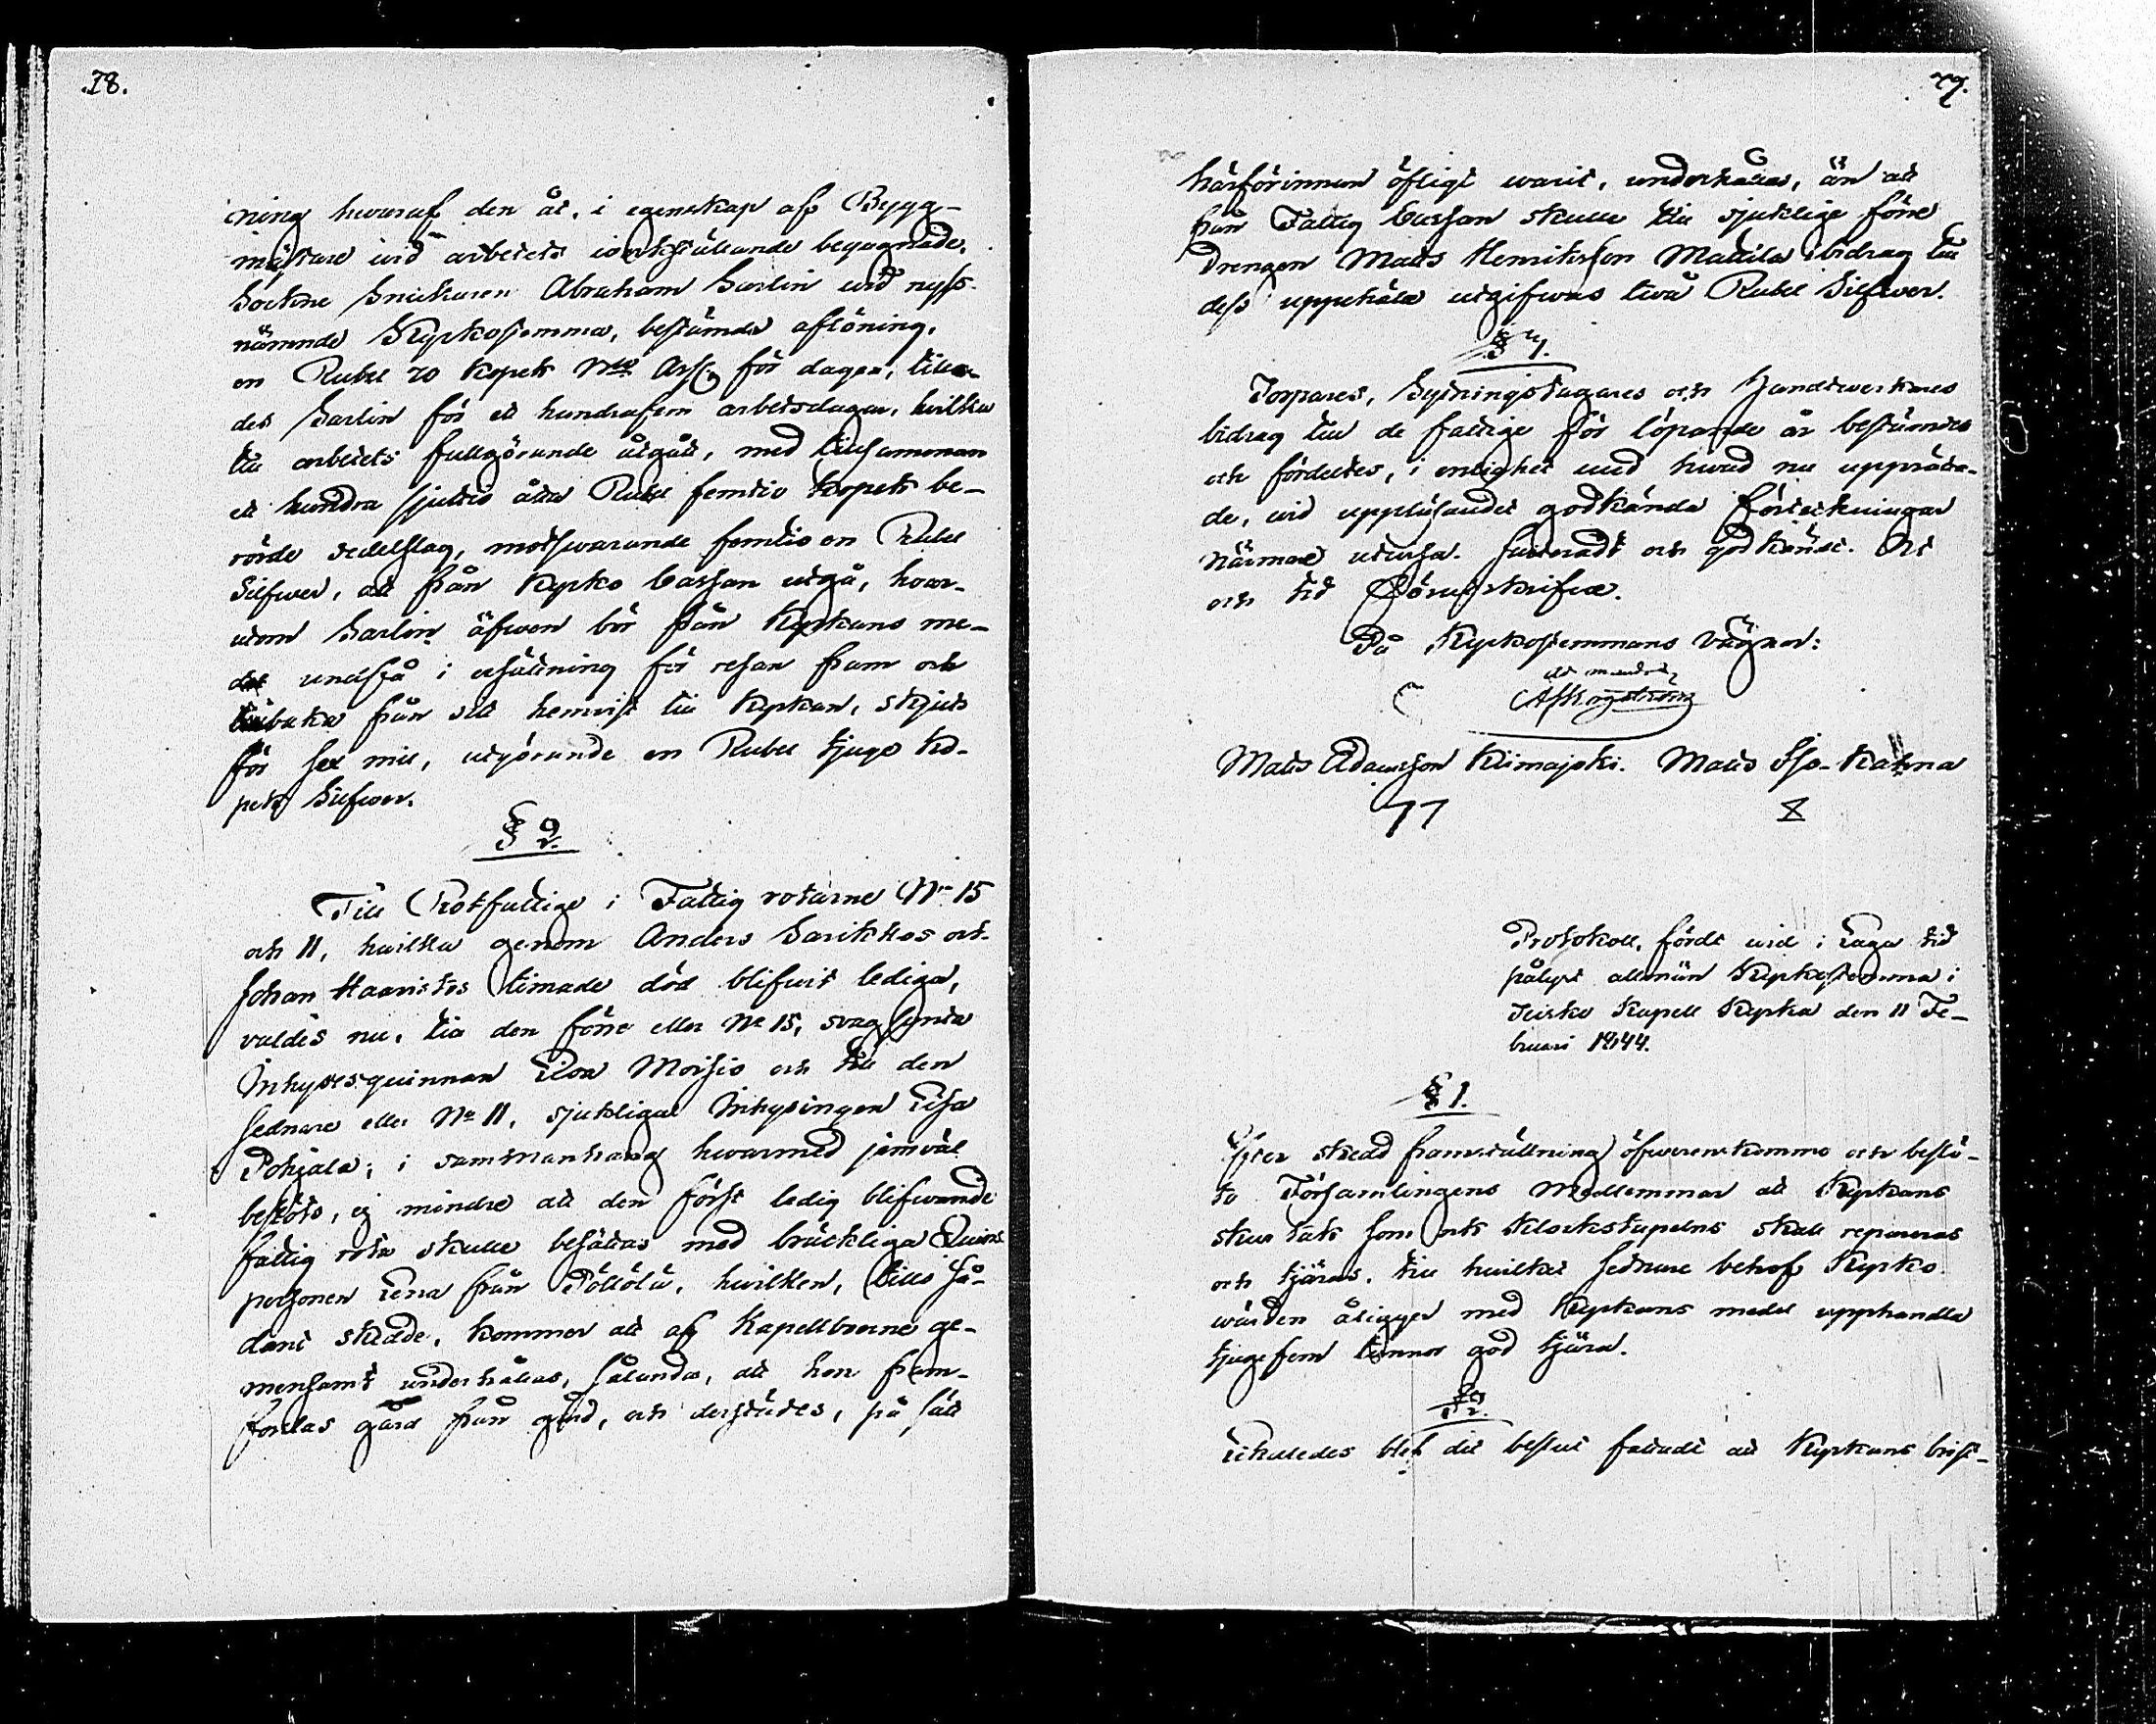 78.
ning hwaraf den åt, i egenskap af Bygg-
mästare wid arbetets werkställande begagnade,
Sockne Snickaren Abraham Sarlin wid nyss-
nämnde Kyrkostemma, bestämda aflöning,
en Rubel 70 Kopek Bco Ass. för dagen, till-
des Sarlin för ett hundrafem arbetsdagar, hvilka
till arbetets fullgörande åtgått, med tillsamman
ett hundra sjuttio åtta Rubel femtio Kopek be-
rörde sedelslag, motswarande femtio en Rubel
Silfwer, att från Kyrko Cassan utgå, hwar-
utom Sarlin äfwen bör från Kyrkans me-
del undfå i ersättning för resan fram och
tillbaka från sitt hemvist till Kyrkan, skjuts
för sex mil, utgörande en Rubel tjugo Ko-
pek Silfwer.
§ 2.
Till Rotfattige i Fattig rotarne No 15
och 11, hwilka genom Anders Sarikkos och
Johan Haavistos timade död blifwit lediga,
valdes nu, till den förre eller No 15, svagsynta
Inhysesqvinnan Moisio och till den
sednare eller No 11, sjukliga Inhysingen Lisa
Pohjala; i sammanhang hwarmed jemväl
beslöts, ej mindre att den först ledig blifwande
fattig rota skulle besättas med bräckliga Quins-
personen Lena från Pöllölä, hwilken, tills så-
dant skedde, kommer att af Kapellboerne ge-
mensamt underhållas, sålunda, att hon fram-
forslas gård från gård, och derstädes, på sätt
79.
härförinnan öfligt warit, underhållas, än att
från Fattig Cassan skulle till sjuklige förre
Drengen Matts Henriksson Mattila i bidrag till
dess uppehälle utgifwas twå Rubel Silfwer.
§ 7.
Torpares, Sytningstagares och Handtwerkares
bidrag till de fattige för löpande år bestämdes
och fördeltes, i enlighet med hwad nu upprätta-
de, wid uppläsandet godkända förteckningar
närmare utwisa. Justeradt och godkändt. År
och tid Föruts krifne.
På Kyrkostemmans Vägnar:
Matts Adamsson Kiimajoki. Matts Iso-Kahna
Protokoll, fördt wid i Laga tid
pålyst allmän Kyrkostemma i
Teisko Kapell Kyrka den 11 Fe-
bruari 1844.
§ 1.
Efter skedd framställning öfwerenskommo och beslö-
to Församlingens Medlemmar att Kyrkans
såwäl tak som ock Klockstapelns skall repareras
och tjäras, till hwilket sednare behof Kyrko
wärden åligger med Kyrkans medel upphandla
tjugefem tunnor god tjära.
§ 2.
Likaledes blef det beslut fattadt att Kyrkans brist-